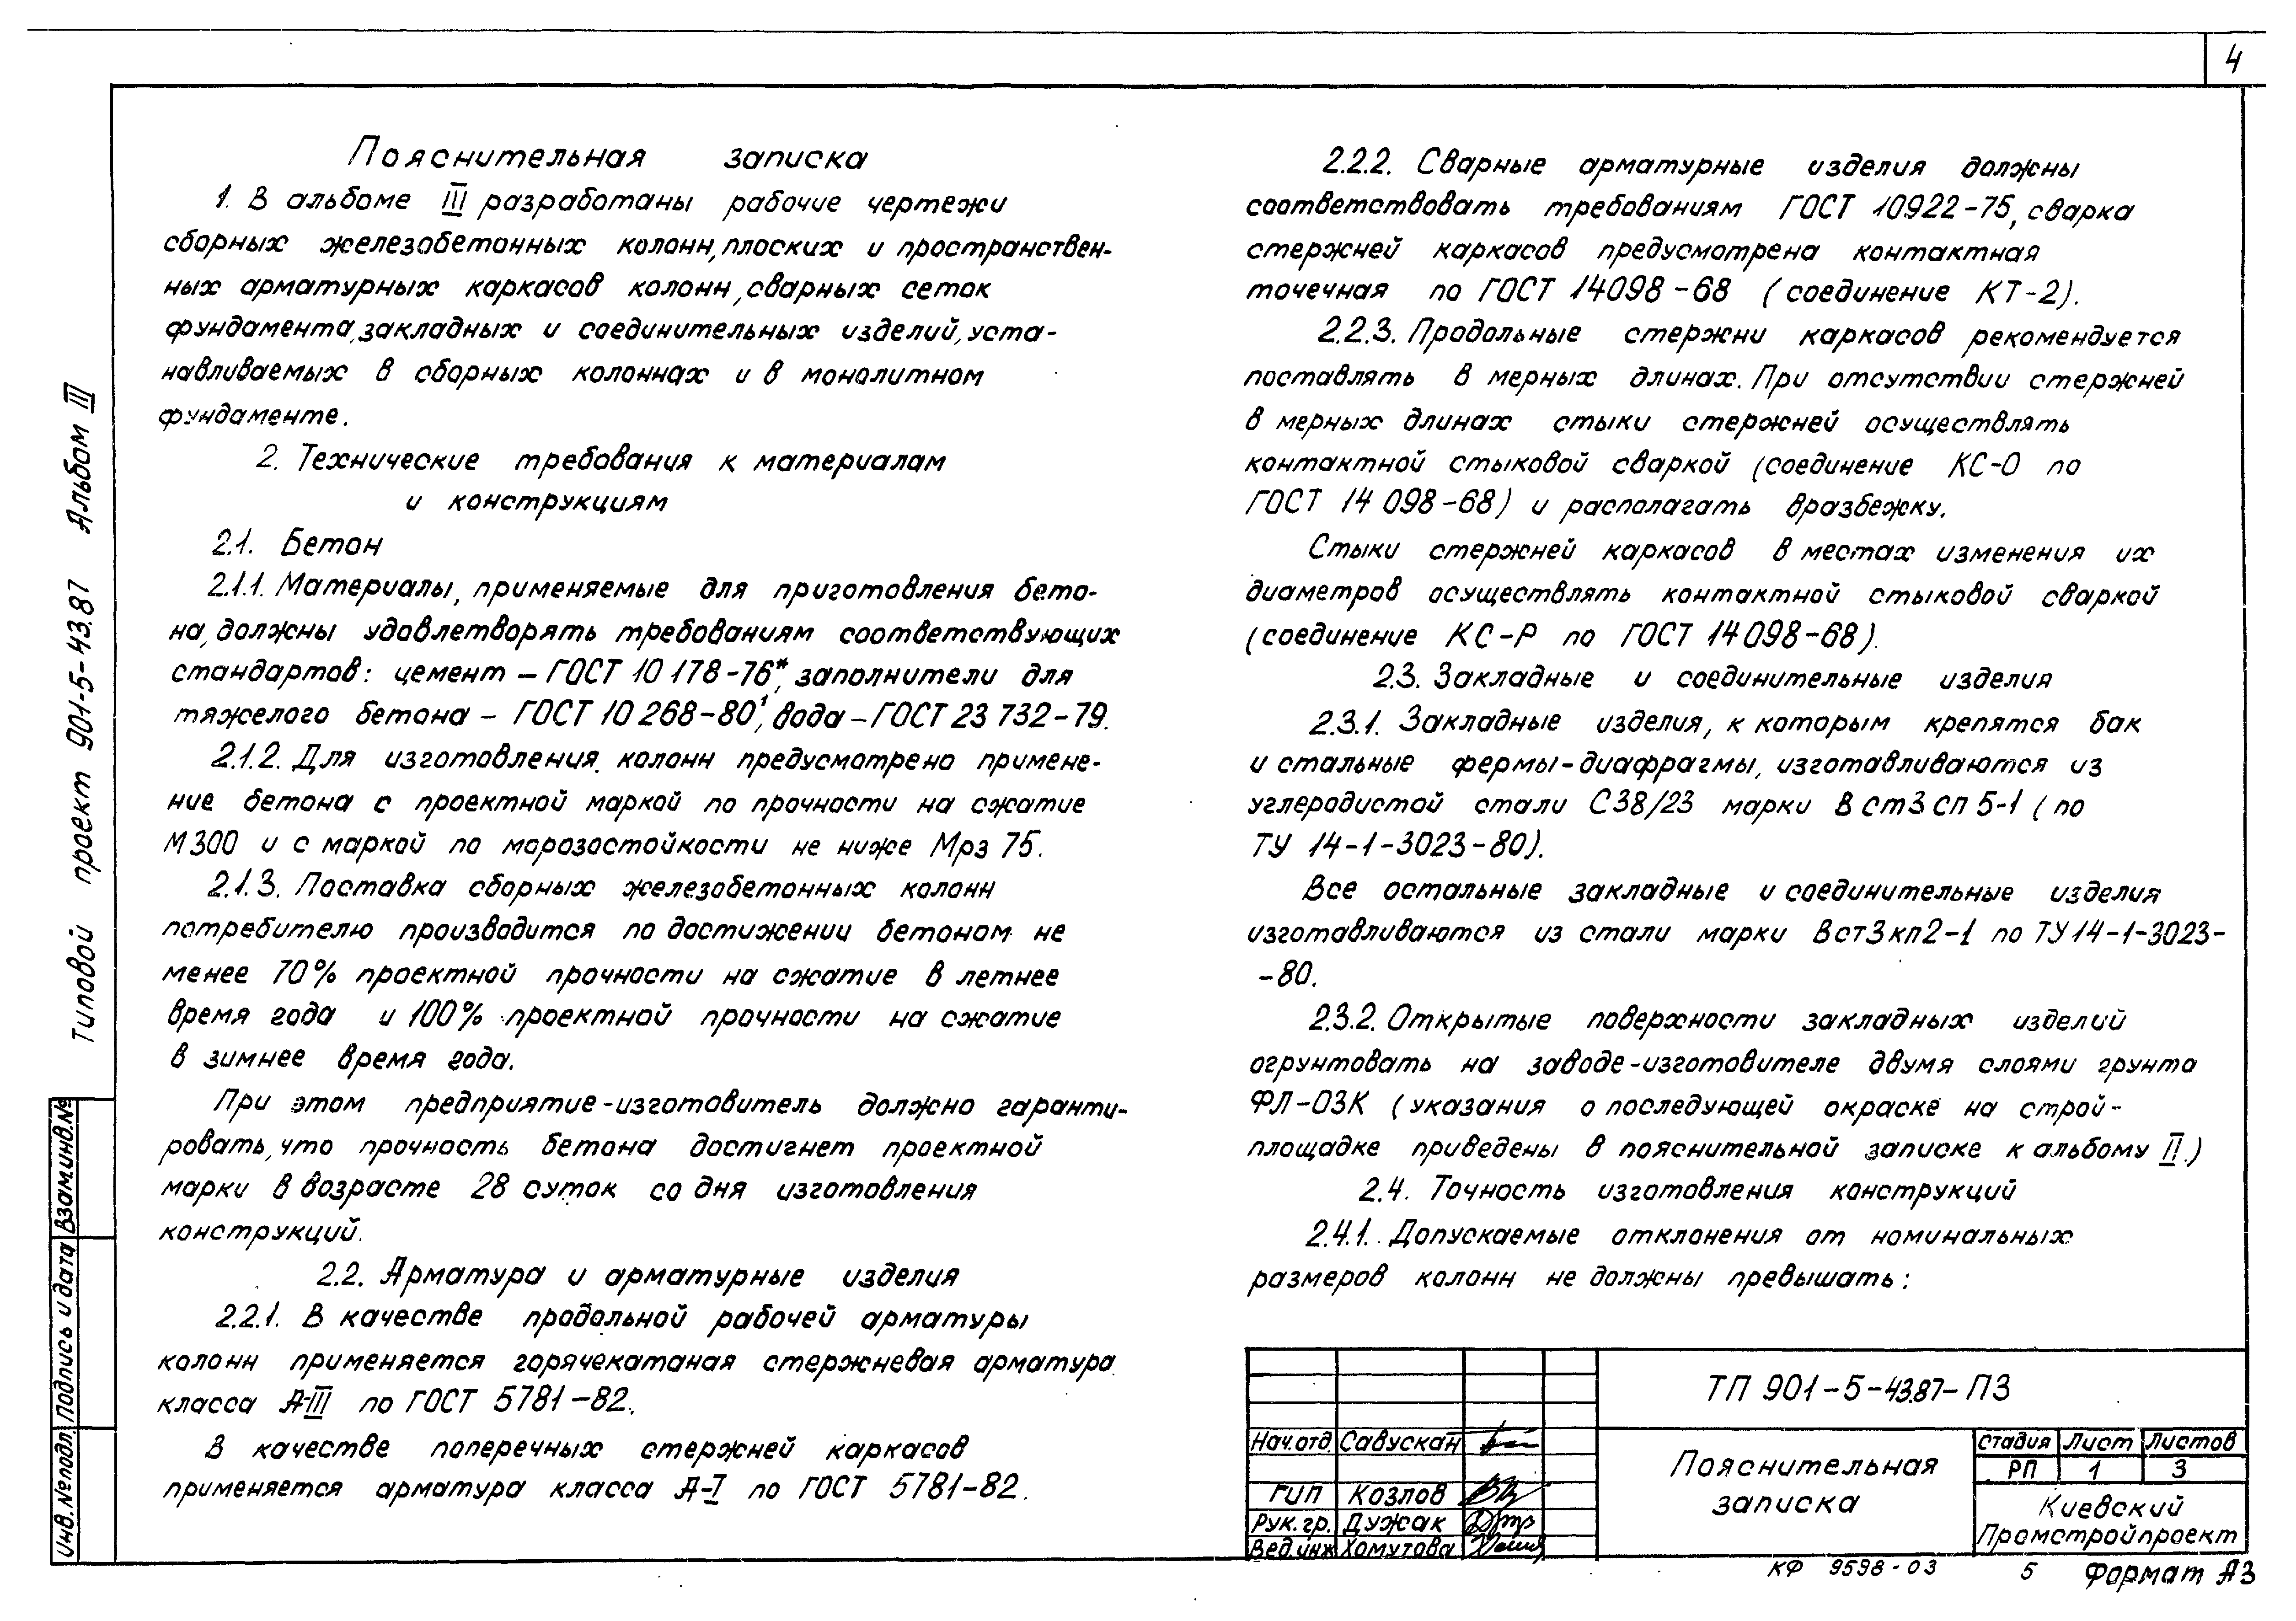 4
Пояснительная записка
1. В альбоме III разработаны рабочие чертежи
сборных железобетонных колонн, плоских и пространствен-
ных арматурных каркасов колонн, сварных сеток
фундамента, закладных и соединительных изделий, уста-
навливаемых в сборных колоннах и в монолитном
фундаменте.
2. Технические требования к материалам
и конструкциям
2.1. Бетон
2.1.1. Материалы, применяемые для приготовления бето-
на, должны удовлетворять требованиям соответствующих
стандартов: цемент – ГОСТ 10 178-76*, заполнители для
тяжелого бетона – ГОСТ 10 268-80¹, вода – ГОСТ 23 732-79.
2.1.2. Для изготовления колонн предусмотрено примене-
ние бетона с проектной маркой по прочности на сжатие
М300 и с маркой по морозостойкости не ниже Мрз 75.
2.1.3. Поставка сборных железобетонных колонн
потребителю производится по достижении бетоном не
менее 70% проектной прочности на сжатие в летнее
время года и 100% проектной прочности на сжатие
в зимнее время года.
При этом предприятие-изготовитель должно гаранти-
ровать, что прочность бетона достигнет проектной
марки в возрасте 28 суток со дня изготовления
конструкций.
2.2. Арматура и арматурные изделия
2.2.1. В качестве продольной рабочей арматуры
колонн применяется горячекатаная стержневая арматура
класса А-III по ГОСТ 5781-82.
В качестве поперечных стержней каркасов
применяется арматура класса А-I по ГОСТ 5781-82.
2.2.2. Сварные арматурные изделия должны
соответствовать требованиям ГОСТ 10922-75, сварка
стержней каркасов предусмотрена контактная
точечная по ГОСТ 14098-68 (соединение КТ-2).
2.2.3. Продольные стержни каркасов рекомендуется
поставлять в мерных длинах. При отсутствии стержней
в мерных длинах стыки стержней осуществлять
контактной стыковой сваркой (соединение КС-О по
ГОСТ 14 098-68) и располагать вразбежку.
Стыки стержней каркасов в местах изменения их
диаметров осуществлять контактной стыковой сваркой
(соединение КС-Р по ГОСТ 14098-68).
2.3. Закладные и соединительные изделия
2.3.1. Закладные изделия, к которым крепятся бак
и стальные фермы-диафрагмы, изготавливаются из
углеродистой стали С38/23 марки В ст3 сп 5-1 (по
ТУ 14-1-3023-80).
Все остальные закладные и соединительные изделия
изготавливаются из стали марки Вст3кп2-1 по ТУ14-1-3023-
-80.
2.3.2. Открытые поверхности закладных изделий
огрунтовать на заводе-изготовителе двумя слоями грунта
ФЛ-03К (указания о последующей окраске на строй-
площадке приведены в пояснительной записке к альбому II.)
2.4. Точность изготовления конструкций
2.4.1. Допускаемые отклонения от номинальных
размеров колонн не должны превышать:
Типовой проект 901-5-43.87 Альбом III
Взам.инв.№
Подпись и дата
Инв.№подл.
ТП 901-5-43.87-ПЗ
Нач.отд. Савускан
ГИП Козлов
Рук.гр. Дужак
Вед.инж Хомутова
Пояснительная
записка
стадия Лист Листов
РП 1 3
Киевский
Промстройпроект
КФ 9598-03 5 Формат А3